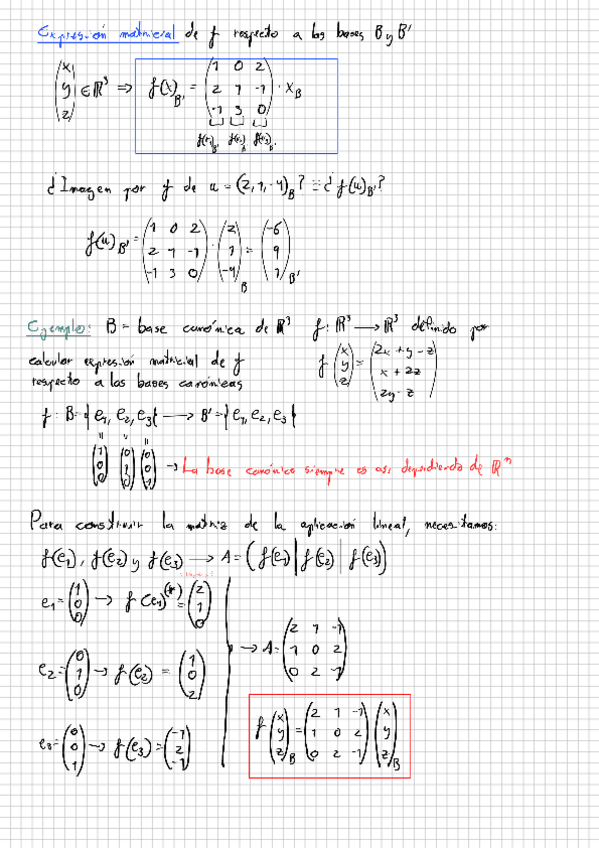 Expresión matricial de f respecto a las bases B y B'
(x y z) ∈ ℝ³ ⇒ f(x)_B' = (1 0 2 / 2 1 -1 / -1 3 0) · x_B
f(e₁)_B' f(e₂)_B' f(e₃)_B'
¿Imagen por f de u = (2, 1, -4)_B? ≡ ¿f(u)_B'?
f(u)_B' = (1 0 2 / 2 1 -1 / -1 3 0) · (2 / 1 / -4)_B = (-6 / 9 / 1)_B'
Ejemplo: B = base canónica de ℝ³ f: ℝ³ → ℝ³ definido por
calcular expresión matricial de f
respecto a las bases canónicas
f (x / y / z) = (2x + y - z / x + 2z / 2y - z)
f: B = {e₁, e₂, e₃} → B' = {e₁, e₂, e₃}
(1 / 0 / 0) (0 / 1 / 0) (0 / 0 / 1) → La base canónica siempre es así, dependiendo de ℝⁿ
Para construir la matriz de la aplicación lineal, necesitamos:
f(e₁), f(e₂) y f(e₃) → A = (f(e₁) | f(e₂) | f(e₃))
e₁ = (1 / 0 / 0) → f(e₁)^(*) = (2 / 1 / 0)
e₂ = (0 / 1 / 0) → f(e₂) = (1 / 0 / 2)
e₃ = (0 / 0 / 1) → f(e₃) = (-1 / 2 / -1)
→ A = (2 1 -1 / 1 0 2 / 0 2 -1)
f (x / y / z)_B = (2 1 -1 / 1 0 2 / 0 2 -1) (x / y / z)_B